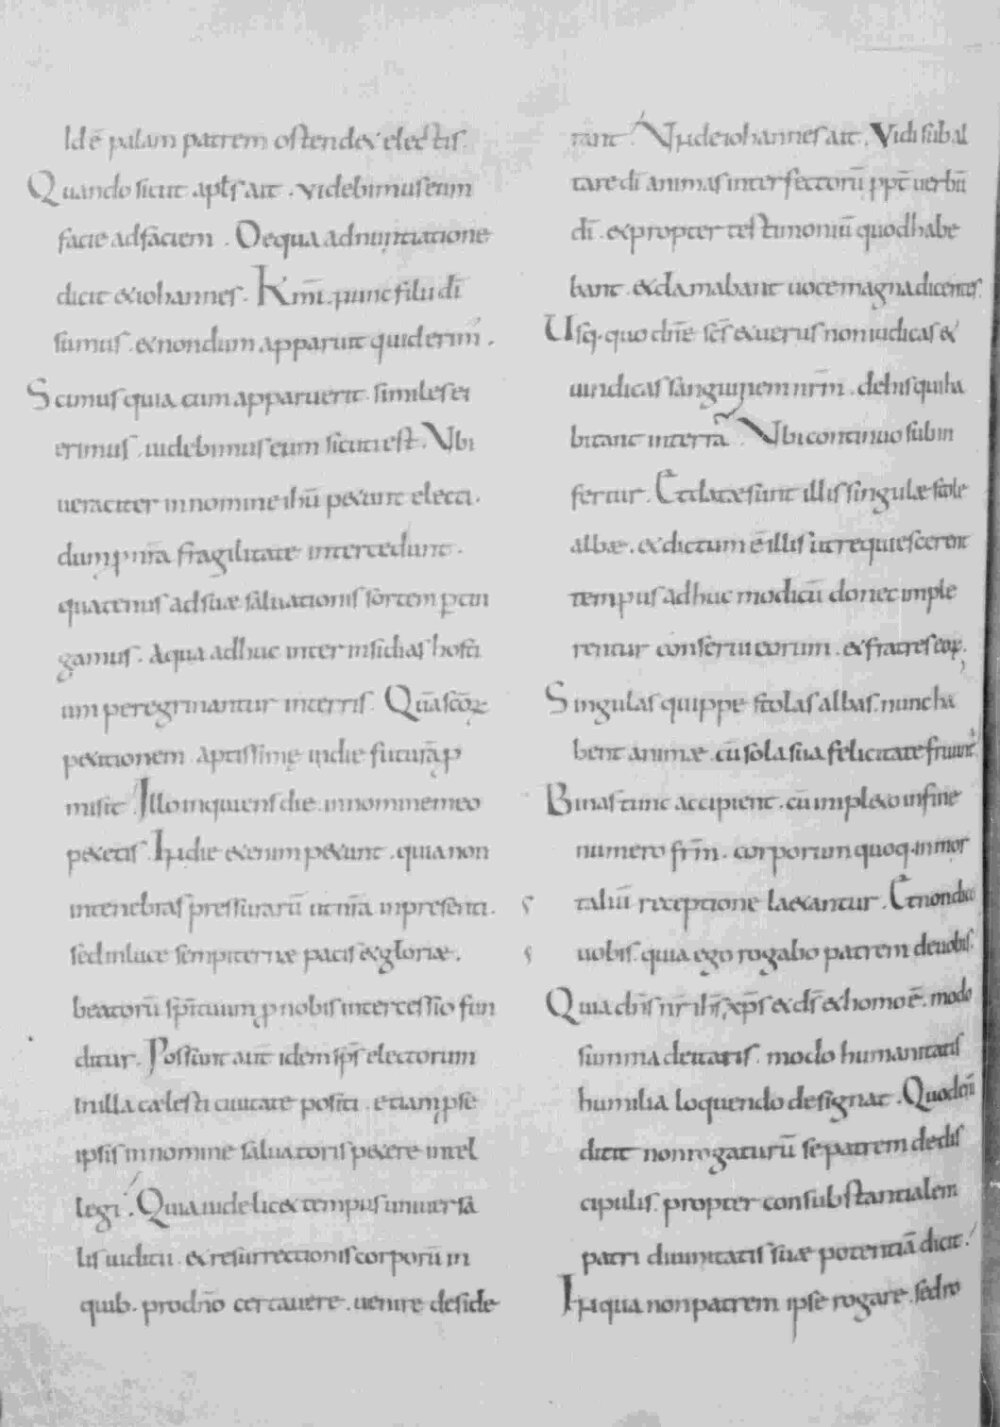 Id ē palam patrem ostendet electis.
Quando sicut apłs ait. videbimus eum
facie ad faciem. De qua adnuntiatione
dicit et iohannes. Kmī. nunc filii dī
sumus. et nondum apparuit quid erim᾽.
Scimus quia cum apparuerit. similes ei
erimus. uidebimus eum sicuti est. Vbi
ueraciter in nomine ihū petunt electi.
dum p nr̄a fragilitate intercedunt.
quatenus ad suæ saluationis sortem ꝑtin
gamus. A qua adhuc inter insidias hosti
um peregrinantur in terris. Quā scōꝝ
petitionem aptissime in die futurā ꝓ
misit. Illo inquiens die. in nomine meo
petetis. In die etenim petunt. quia non
in tenebras pressurarū ut nr̄a in presenti.
sed in luce sempiternæ pacis et gloriæ.
beatorū sp̄ituum ꝓ nobis intercessio fun
ditur. Possunt aut̄ idem sp̄s electorum
in illa cælesti ciuitate positi. etiam ꝓ se
ipsis in nomine saluatoris petere intel
legi. Quia uidelicet tempus uniuersa
lis iudicii. et resurrectionis corporū in
quib. pro dn̄o certauere. uenire deside
rant. Vnde iohannes ait. Vidi sub al
tare dī animas interfectorū ppt̄ uerbū
dī. et propter testimoniū quod habe
bant. et clamabant uoce magna dicentes.
Vsq. quo dn̄e sc̄s et uerus non iudicas et
uindicas sanguinem nr̄m. de his qui ha
bitant in terrā. Vbi continuo subin
fertur. Et datæ sunt illis singulæ stole
albæ. et dictum ē illis ut requiescerent
tempus adhuc modicū donec imple
rentur conserui eorum. et fratres eoꝝ.
Singulas quippe stolas albas. nunc ha
bent animæ. cū sola sua felicitate fruunt᾽
Binas tunc accipient. cū impleto in fine
numero fr̄m. corporum quoq. in mor
taliū receptione laetantur. Et non dico
uobis. quia ego rogabo patrem de uobis.
Quia dn̄s nr̄ ihs̄ xp̄s et ds̄ et homo ē. modo
summa deitatis. modo humanitatis
humilia loquendo designat. Quod eni
dicit non rogaturū se patrem de dis
cipulis. propter consubstantialem
patri diuinitatis suæ potentiā dicit.
In qua non patrem ipse rogare. sed ro